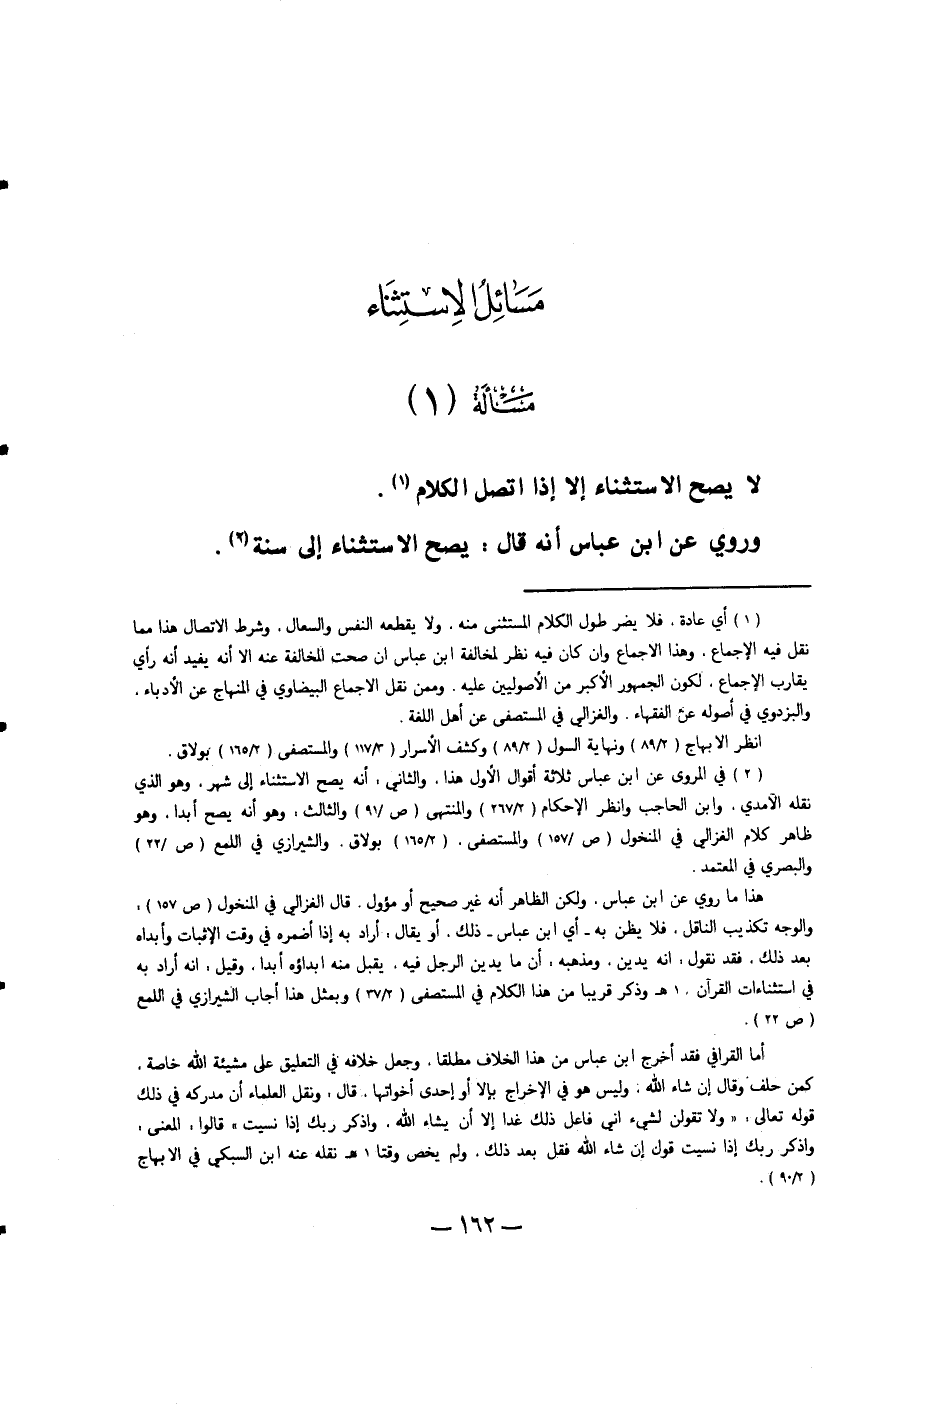 مَسَائِلُ الاِسْتِثْنَاء
مَسْأَلَة (١)
لا يصح الاستثناء إلا إذا اتصل الكلام (١) .
وروي عن ابن عباس أنه قال : يصح الاستثناء إلى سنة (٢) .
(١) أي عادة . فلا يضر طول الكلام المستثنى منه . ولا يقطعه النفس والسعال . وشرط الاتصال هذا مما
نقل فيه الإجماع . وهذا الاجماع وان كان فيه نظر لمخالفة ابن عباس ان صحت المخالفة عنه الا أنه يفيد أنه رأي
يقارب الإجماع . لكون الجمهور الأكبر من الأصوليين عليه . وممن نقل الاجماع البيضاوي في المنهاج عن الأدباء .
والبزدوي في أصوله عن الفقهاء . والغزالي في المستصفى عن أهل اللغة .
انظر الابهاج ( ٨٩/٢ ) ونهاية السول ( ٨٩/٢ ) وكشف الأسرار ( ١١٧/٣ ) والمستصفى ( ١٦٥/٢ ) بولاق .
(٢) في المروى عن ابن عباس ثلاثة أقوال الأول هذا . والثاني : أنه يصح الاستثناء إلى شهر . وهو الذي
نقله الآمدي . وابن الحاجب وانظر الإحكام ( ٢٦٧/٢ ) والمنتهى ( ص /٩١ ) والثالث : وهو أنه يصح أبدا . وهو
ظاهر كلام الغزالي في المنخول ( ص /١٥٧ ) والمستصفى . ( ١٦٥/٢ ) بولاق . والشيرازي في اللمع ( ص /٢٢ )
والبصري في المعتمد .
هذا ما روي عن ابن عباس . ولكن الظاهر أنه غير صحيح أو مؤول . قال الغزالي في المنخول ( ص ١٥٧ ) :
والوجه تكذيب الناقل . فلا يظن به ـ أي ابن عباس ـ ذلك . أو يقال : أراد به إذا أضمره في وقت الإثبات وأبداه
بعد ذلك . فقد نقول : انه يدين . ومذهبه : أن ما يدين الرجل فيه . يقبل منه ابداؤه أبدا . وقيل : انه أراد به
في استثناءات القرآن . ١ هـ وذكر قريبا من هذا الكلام في المستصفى ( ٣٧/٢ ) وبمثل هذا أجاب الشيرازي في اللمع
( ص ٢٢ ) .
أما القرافي فقد أخرج ابن عباس من هذا الخلاف مطلقا . وجعل خلافه في التعليق على مشيئة الله خاصة .
كمن حلف وقال إن شاء الله . وليس هو في الإخراج بإلا أو إحدى أخواتها . قال : ونقل العلماء أن مدركه في ذلك
قوله تعالى : « ولا تقولن لشيء اني فاعل ذلك غدا إلا أن يشاء الله . واذكر ربك إذا نسيت » قالوا : المعنى :
واذكر ربك إذا نسيت قول إن شاء الله فقل بعد ذلك . ولم يخص وقتا ١ هـ نقله عنه ابن السبكي في الابهاج
( ٩٠/٢ ) .
— ١٦٢ —